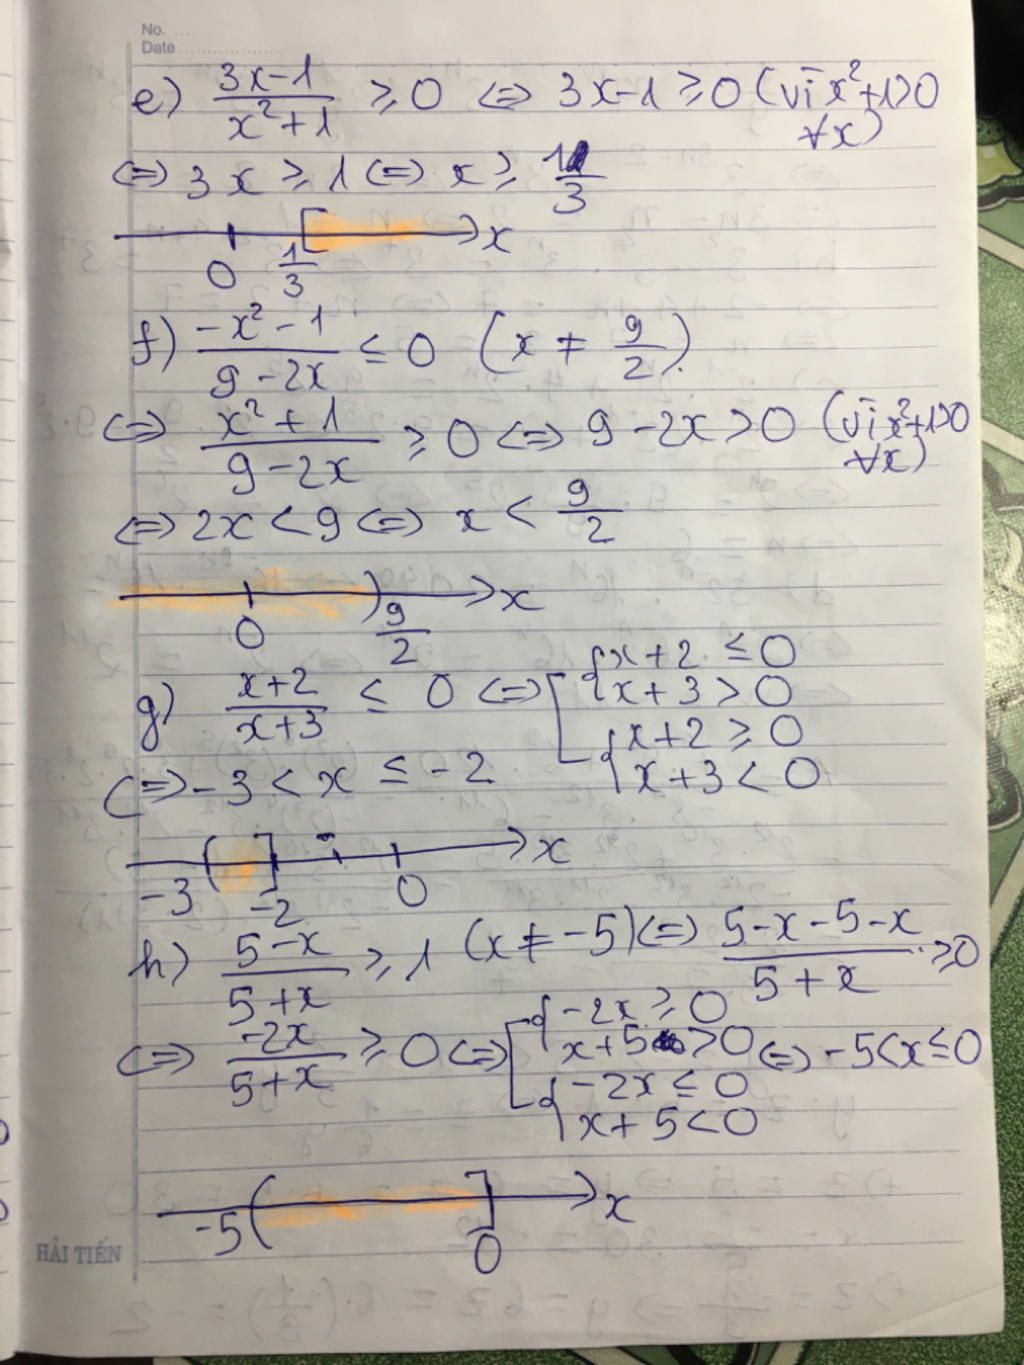 No.
Date
e) (3x-1)/(x²+1) ≥ 0 <=> 3x-1 ≥ 0 (vì x²+1>0 ∀x)
<=> 3x ≥ 1 <=> x ≥ 1/3
0 1/3 x
f) (-x²-1)/(9-2x) ≤ 0 (x ≠ 9/2)
<=> (x²+1)/(9-2x) ≥ 0 <=> 9-2x > 0 (vì x²+1>0 ∀x)
<=> 2x < 9 <=> x < 9/2
0 9/2 x
g) (x+2)/(x+3) ≤ 0 <=> [ { x+2 ≤ 0
x+3 > 0
{ x+2 ≥ 0
x+3 < 0
<=> -3 < x ≤ -2
-3 -2 0 x
h) (5-x)/(5+x) ≥ 1 (x ≠ -5) <=> (5-x-5-x)/(5+x) ≥ 0
<=> (-2x)/(5+x) ≥ 0 <=> [ { -2x ≥ 0
x+5 > 0
{ -2x ≤ 0
x+5 < 0
<=> -5 < x ≤ 0
-5 0 x
HẢI TIẾN